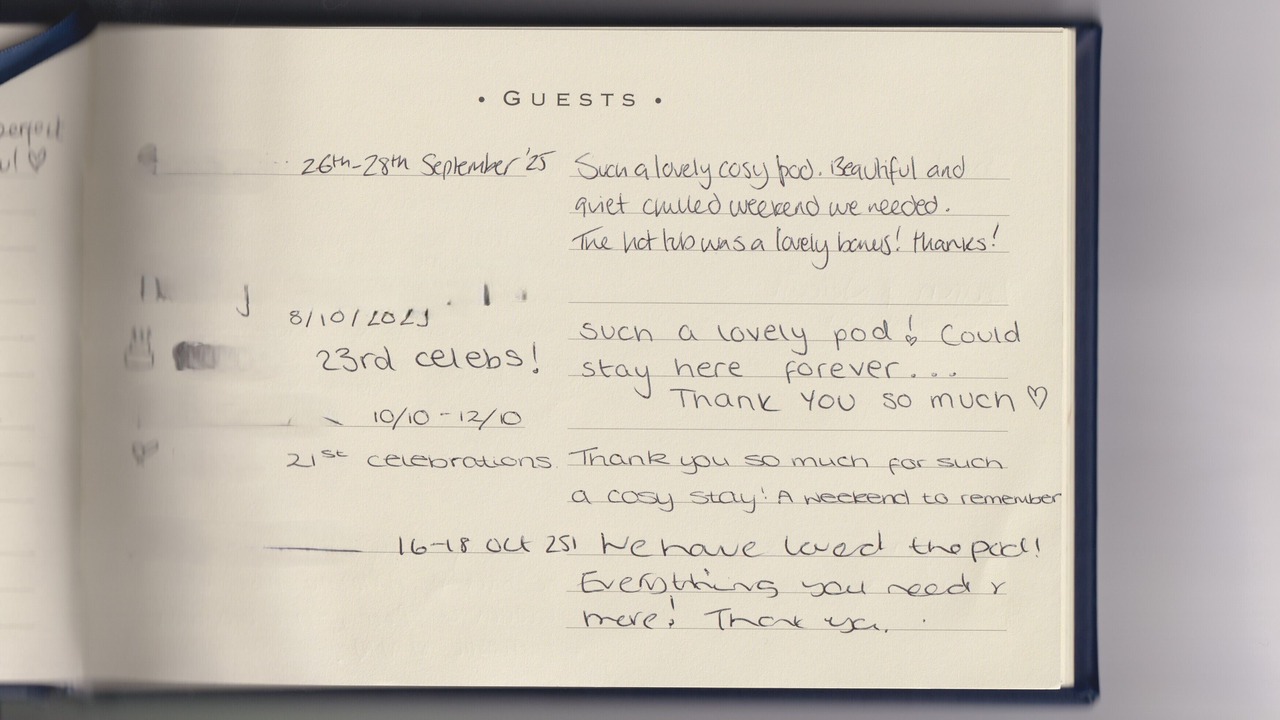 perfect
• GUESTS •
26th-28th September '25 Such a lovely cosy pod. Beautiful and
quiet chilled weekend we needed.
The hot tub was a lovely bonus! thanks!
8/10/2025
23rd celebs!
such a lovely pod! Could
stay here forever...
Thank you so much ♡
10/10 - 12/10
21st celebrations. Thank you so much for such
a cosy stay! A weekend to remember
16-18 Oct 25! We have loved the pod!
Everything you need &
more! Thank you.